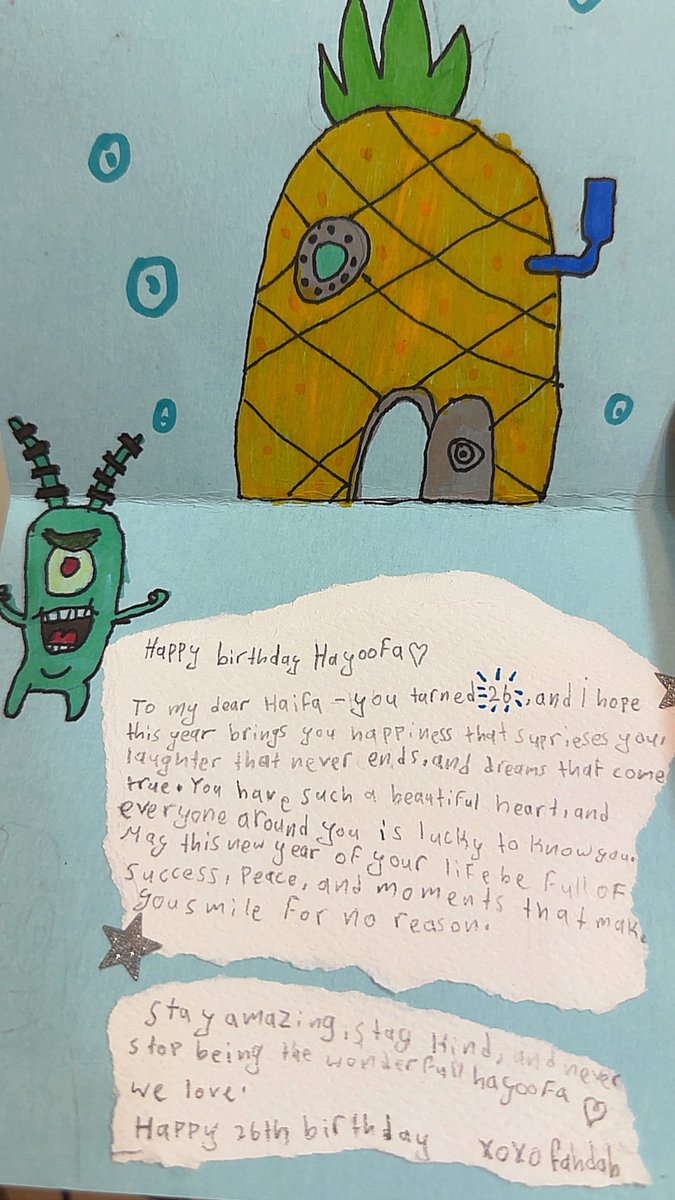 Happy birthday Hayoofa♡
To my dear Haifa - you turned 26, and i hope
this year brings you happiness that suprieses you,
laughter that never ends, and dreams that come
true. You have such a beautiful heart, and
everyone around you is lucky to know you.
May this new year of your life be full of
success, peace, and moments that make
you smile for no reason.
Stay amazing, stay kind, and never
stop being the wonderfull hayoofa
we love. ♡
Happy 26th birthday
xoxo fahdah